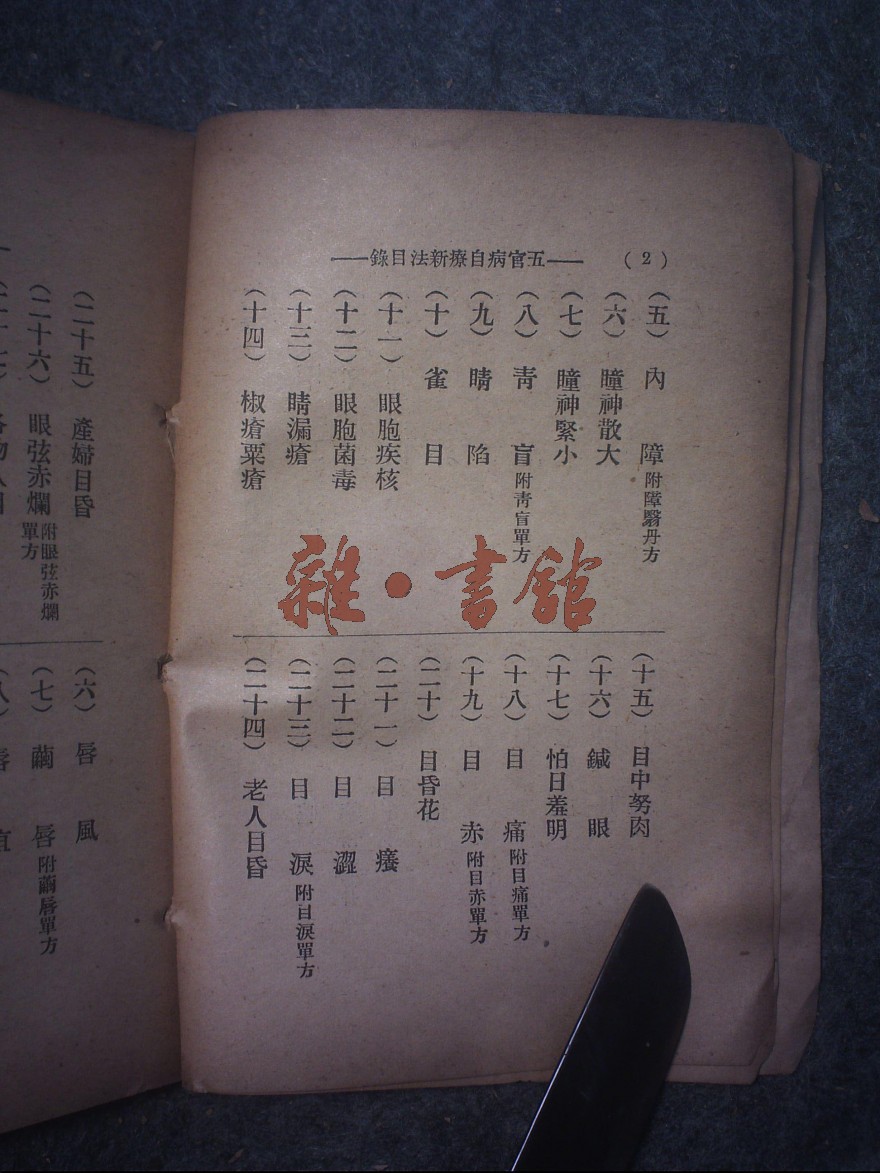 (2) ——五官病自療新法目錄——
(五) 內障 附障翳丹方
(六) 瞳神散大
(七) 瞳神緊小
(八) 靑盲 附靑盲單方
(九) 睛陷
(十) 雀目
(十一) 眼胞疾核
(十二) 眼胞菌毒
(十三) 睛漏瘡
(十四) 椒瘡粟瘡
(十五) 目中努肉
(十六) 鍼眼
(十七) 怕日羞明
(十八) 目痛 附目痛單方
(十九) 目赤 附目赤單方
(二十) 目昏花
(二十一) 目癢
(二十二) 目澀
(二十三) 目淚 附目淚單方
(二十四) 老人目昏
(二十五) 產婦目昏
(二十六) 眼弦赤爛 附眼弦赤爛單方
(六) 唇風
(七) 繭唇 附繭唇單方
雜·書館